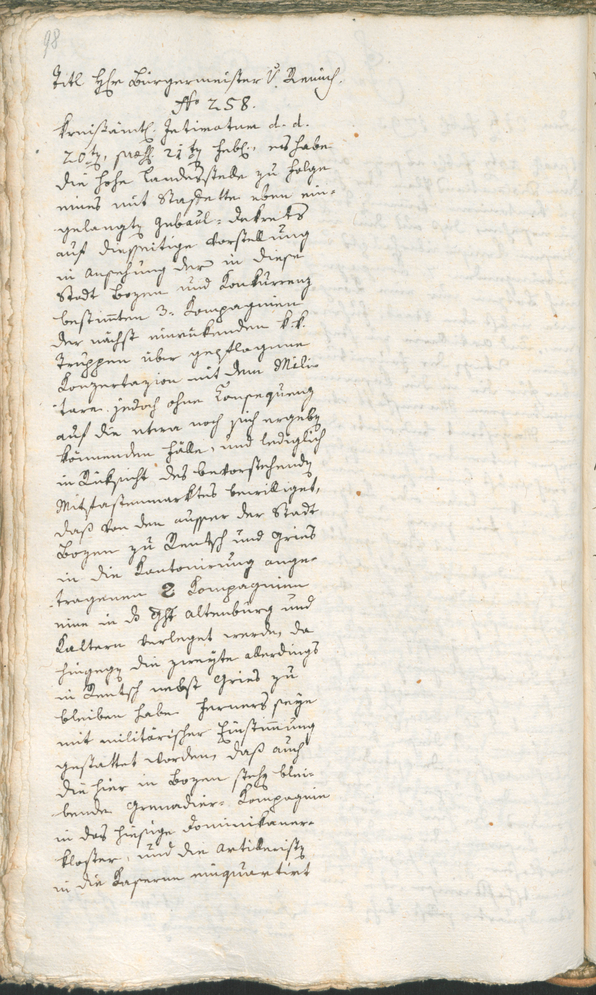 98
Titl Hr Bürgermeister v. Remich.
No 258.
Kreisämtl. Intimatum d. d.
20ten, praes. 21ten Febr., es habe
die hohe Landesstelle zu Folge
eines mit Staffette eben ein-
gelangten Gubernial-Dekrets
auf diesseitige Vorstellung
in Ansehung der in diese
Stadt Bozen und Konkurrenz
bestimmten 3. Kompagnien
der nächst einrükenden k. k.
Truppen über gepflogene
Konzertazion mit dem Mili-
tare. jedoch ohne Consequenz
auf die etwa noch sich ergeben
könnenden Fälle, und lediglich
in Rüksicht des bevorstehenden
Mitfastenmarktes bewilliget,
daß von den ausser der Stadt
Bozen zu Rentsch und Gries
in die Kantonirung ange-
tragenen 2 Kompagnien
eine in das Ght Altenburg und
Kaltern verleget werde, da
hingegen die zweyte allerdings
in Rentsch nebst Gries zu
bleiben habe. Ferners seye
mit militärischer Einstimmung
gestattet worden, daß auch
die hier in Bozen stehen blei-
bende Grenadier-Kompagnie
in das hiesige Dominikaner-
kloster, und die Artilleristen
in die Kaserne einquartirt